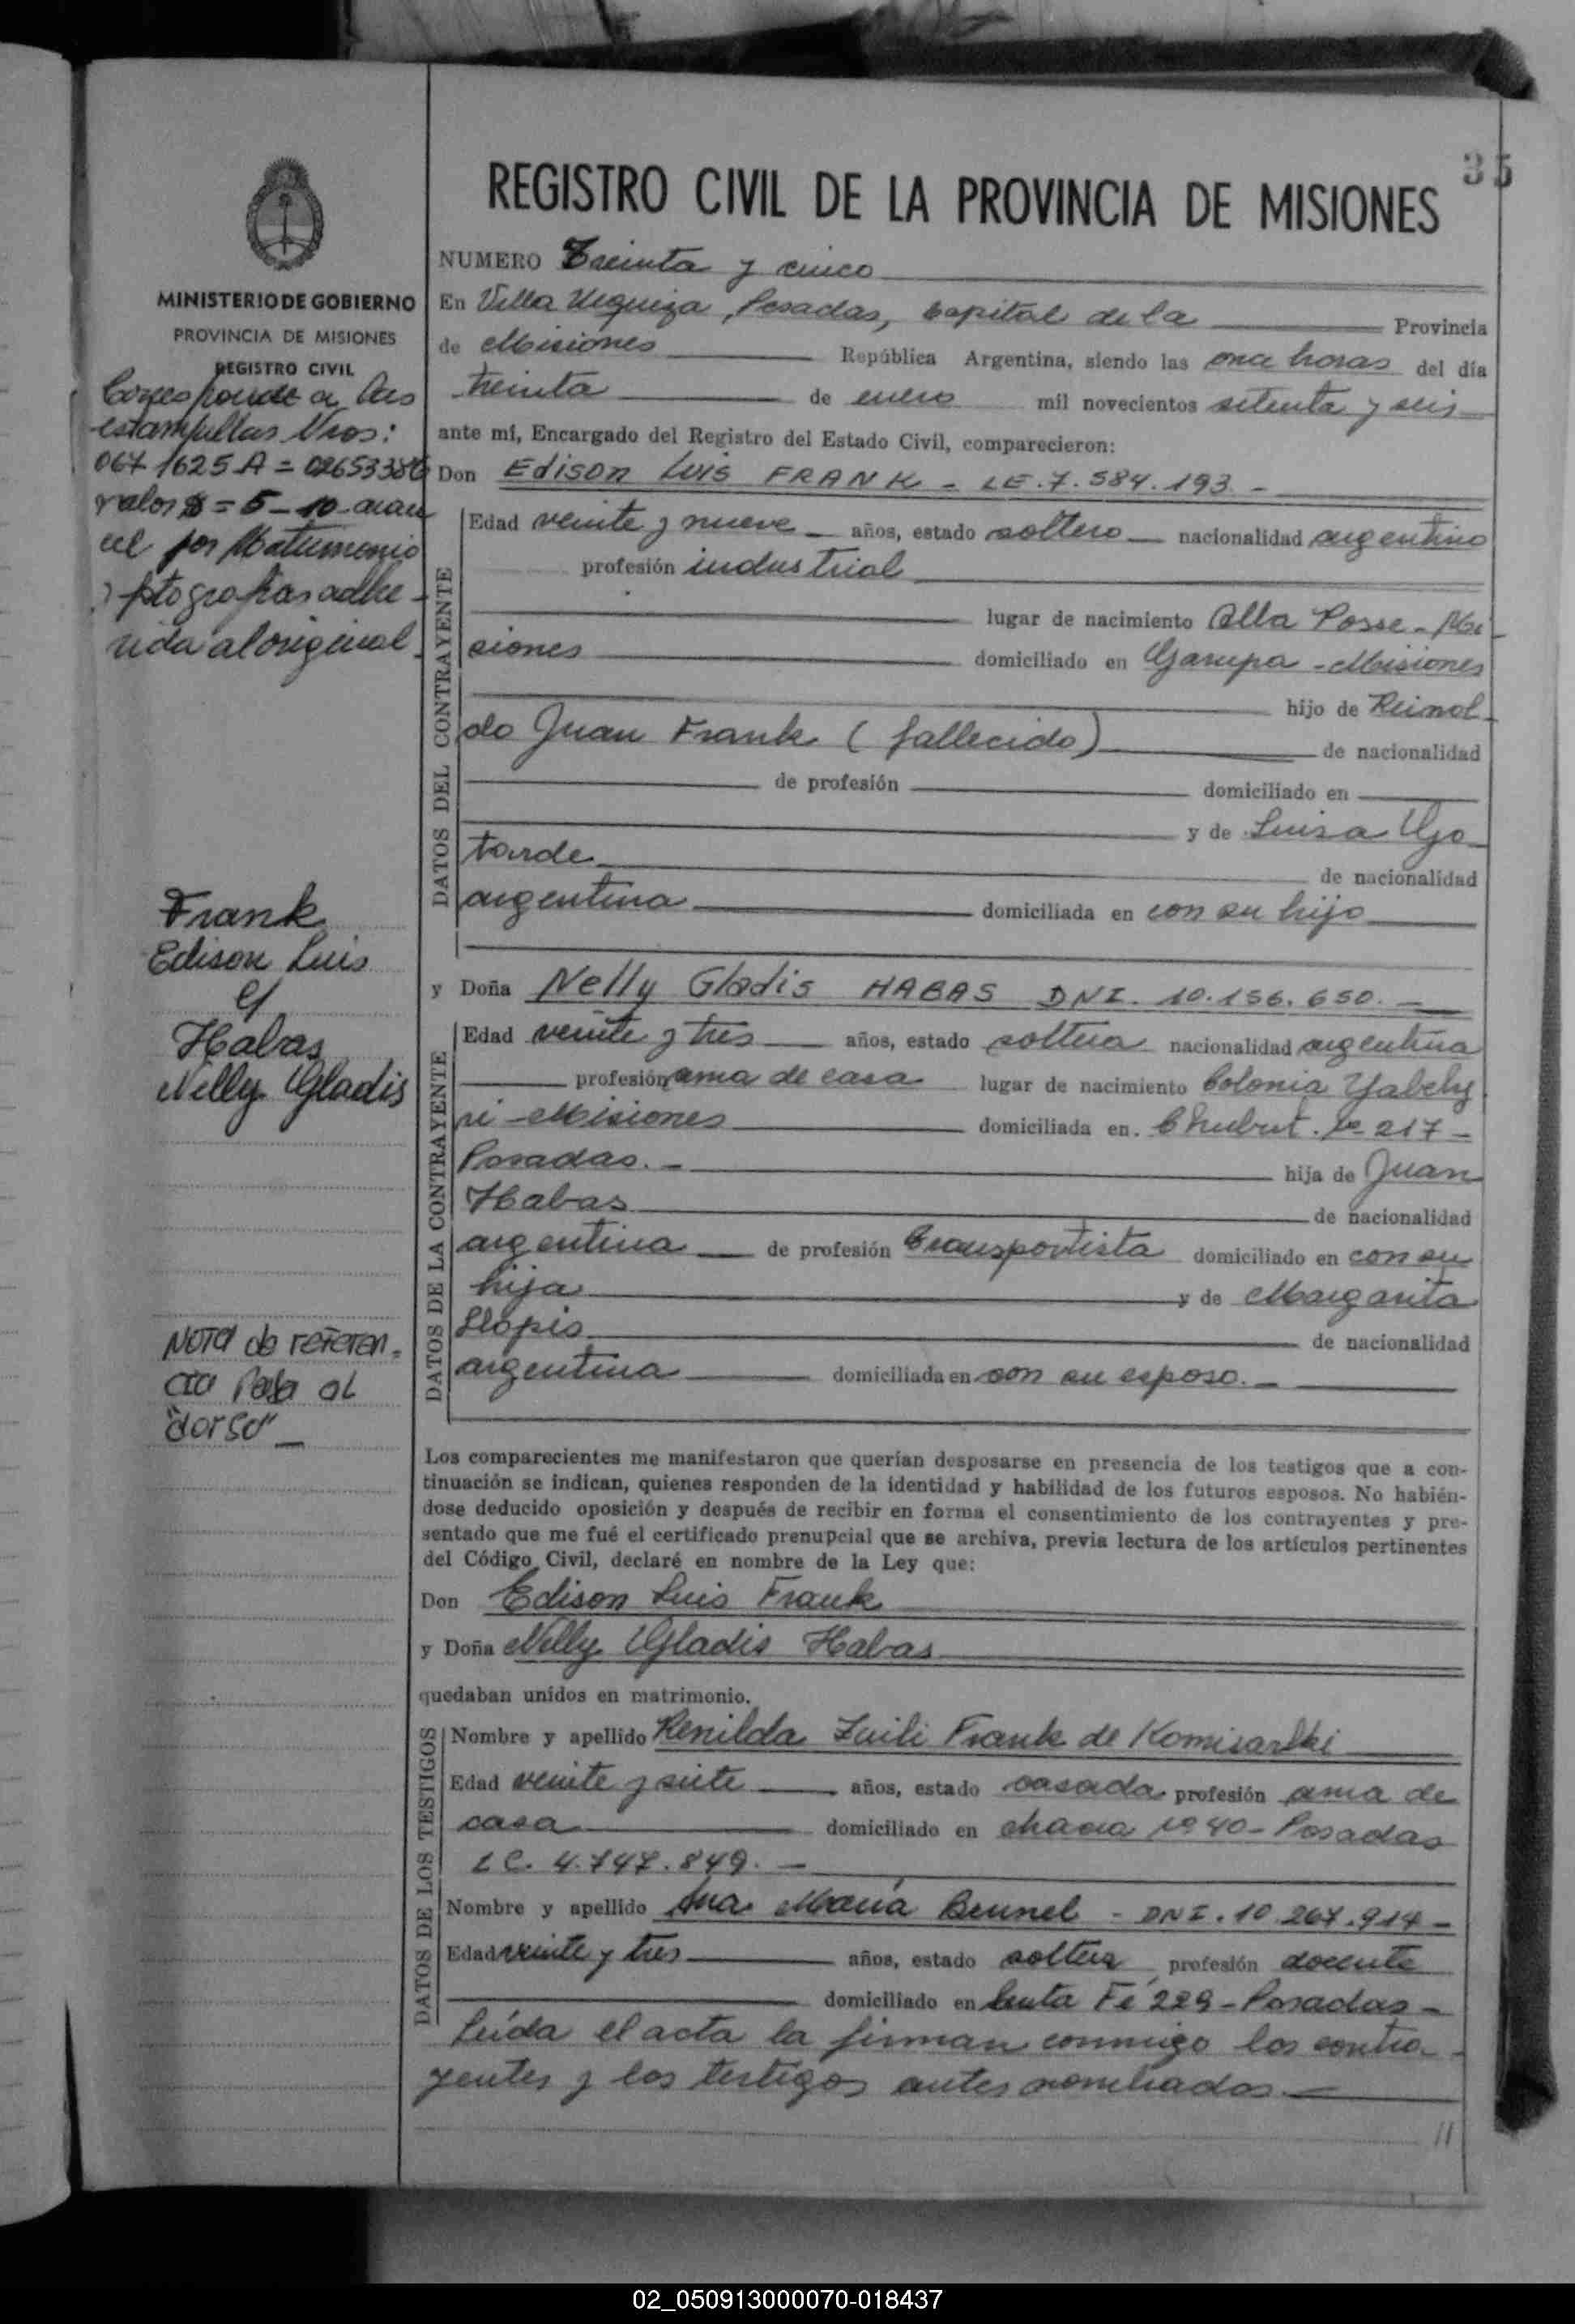 35
REGISTRO CIVIL DE LA PROVINCIA DE MISIONES
MINISTERIO DE GOBIERNO
PROVINCIA DE MISIONES
REGISTRO CIVIL
Corresponde a las
estampillas Nros:
067 1625 A = 02653386
valor $ = 5 - 10 - aran
cel por Matrimonio
y fotografias adhe-
rida al original
Frank
Edison Luis
c/
Habas
Nelly Gladis
Nota de referen-
cia Pasa al
"dorso"
NUMERO Treinta y cinco
En Villa Urquiza, Posadas, Capital de la Provincia
de Misiones República Argentina, siendo las once horas del día
treinta de enero mil novecientos setenta y seis
ante mí, Encargado del Registro del Estado Civil, comparecieron:
Don Edison Luis FRANK - LE. 7.584.193 -
DATOS DEL CONTRAYENTE
Edad veinte y nueve años, estado soltero nacionalidad argentino
profesión industrial
lugar de nacimiento Alba Posse - Mi-
siones domiciliado en Garupa - Misiones
hijo de Reinol-
do Juan Frank (fallecido) de nacionalidad
de profesión domiciliado en
y de Luisa
tarde de nacionalidad
argentina domiciliada en con su hijo
y Doña Nelly Gladis HABAS DNI. 10.156.650. -
DATOS DE LA CONTRAYENTE
Edad veinte y tres años, estado soltera nacionalidad argentina
profesión ama de casa lugar de nacimiento Colonia Yabeby
ri - Misiones domiciliada en. Chubut. Nº 217 -
Posadas. - hija de Juan
Habas de nacionalidad
argentina de profesión transportista domiciliado en con su
hija y de Margarita
Llopis de nacionalidad
argentina domiciliada en con su esposo. -
Los comparecientes me manifestaron que querían desposarse en presencia de los testigos que a con-
tinuación se indican, quienes responden de la identidad y habilidad de los futuros esposos. No habién-
dose deducido oposición y después de recibir en forma el consentimiento de los contrayentes y pre-
sentado que me fué el certificado prenupcial que se archiva, previa lectura de los artículos pertinentes
del Código Civil, declaré en nombre de la Ley que:
Don Edison Luis Frank
y Doña Nelly Gladis Habas
quedaban unidos en matrimonio.
DATOS DE LOS TESTIGOS
Nombre y apellido Renilda Frank de Komisarski
Edad veinte y siete años, estado casada profesión ama de
casa domiciliado en chacra Nº 40 - Posadas
LC. 4.747.849. -
Nombre y apellido Ana María Brunel - DNI. 10.267.914 -
Edad veinte y tres años, estado soltera profesión docente
domiciliado en Santa Fé 229 - Posadas -
Leída el acta la firman conmigo los contra-
yentes y los testigos antes nombrados. -
//
02_050913000070-018437